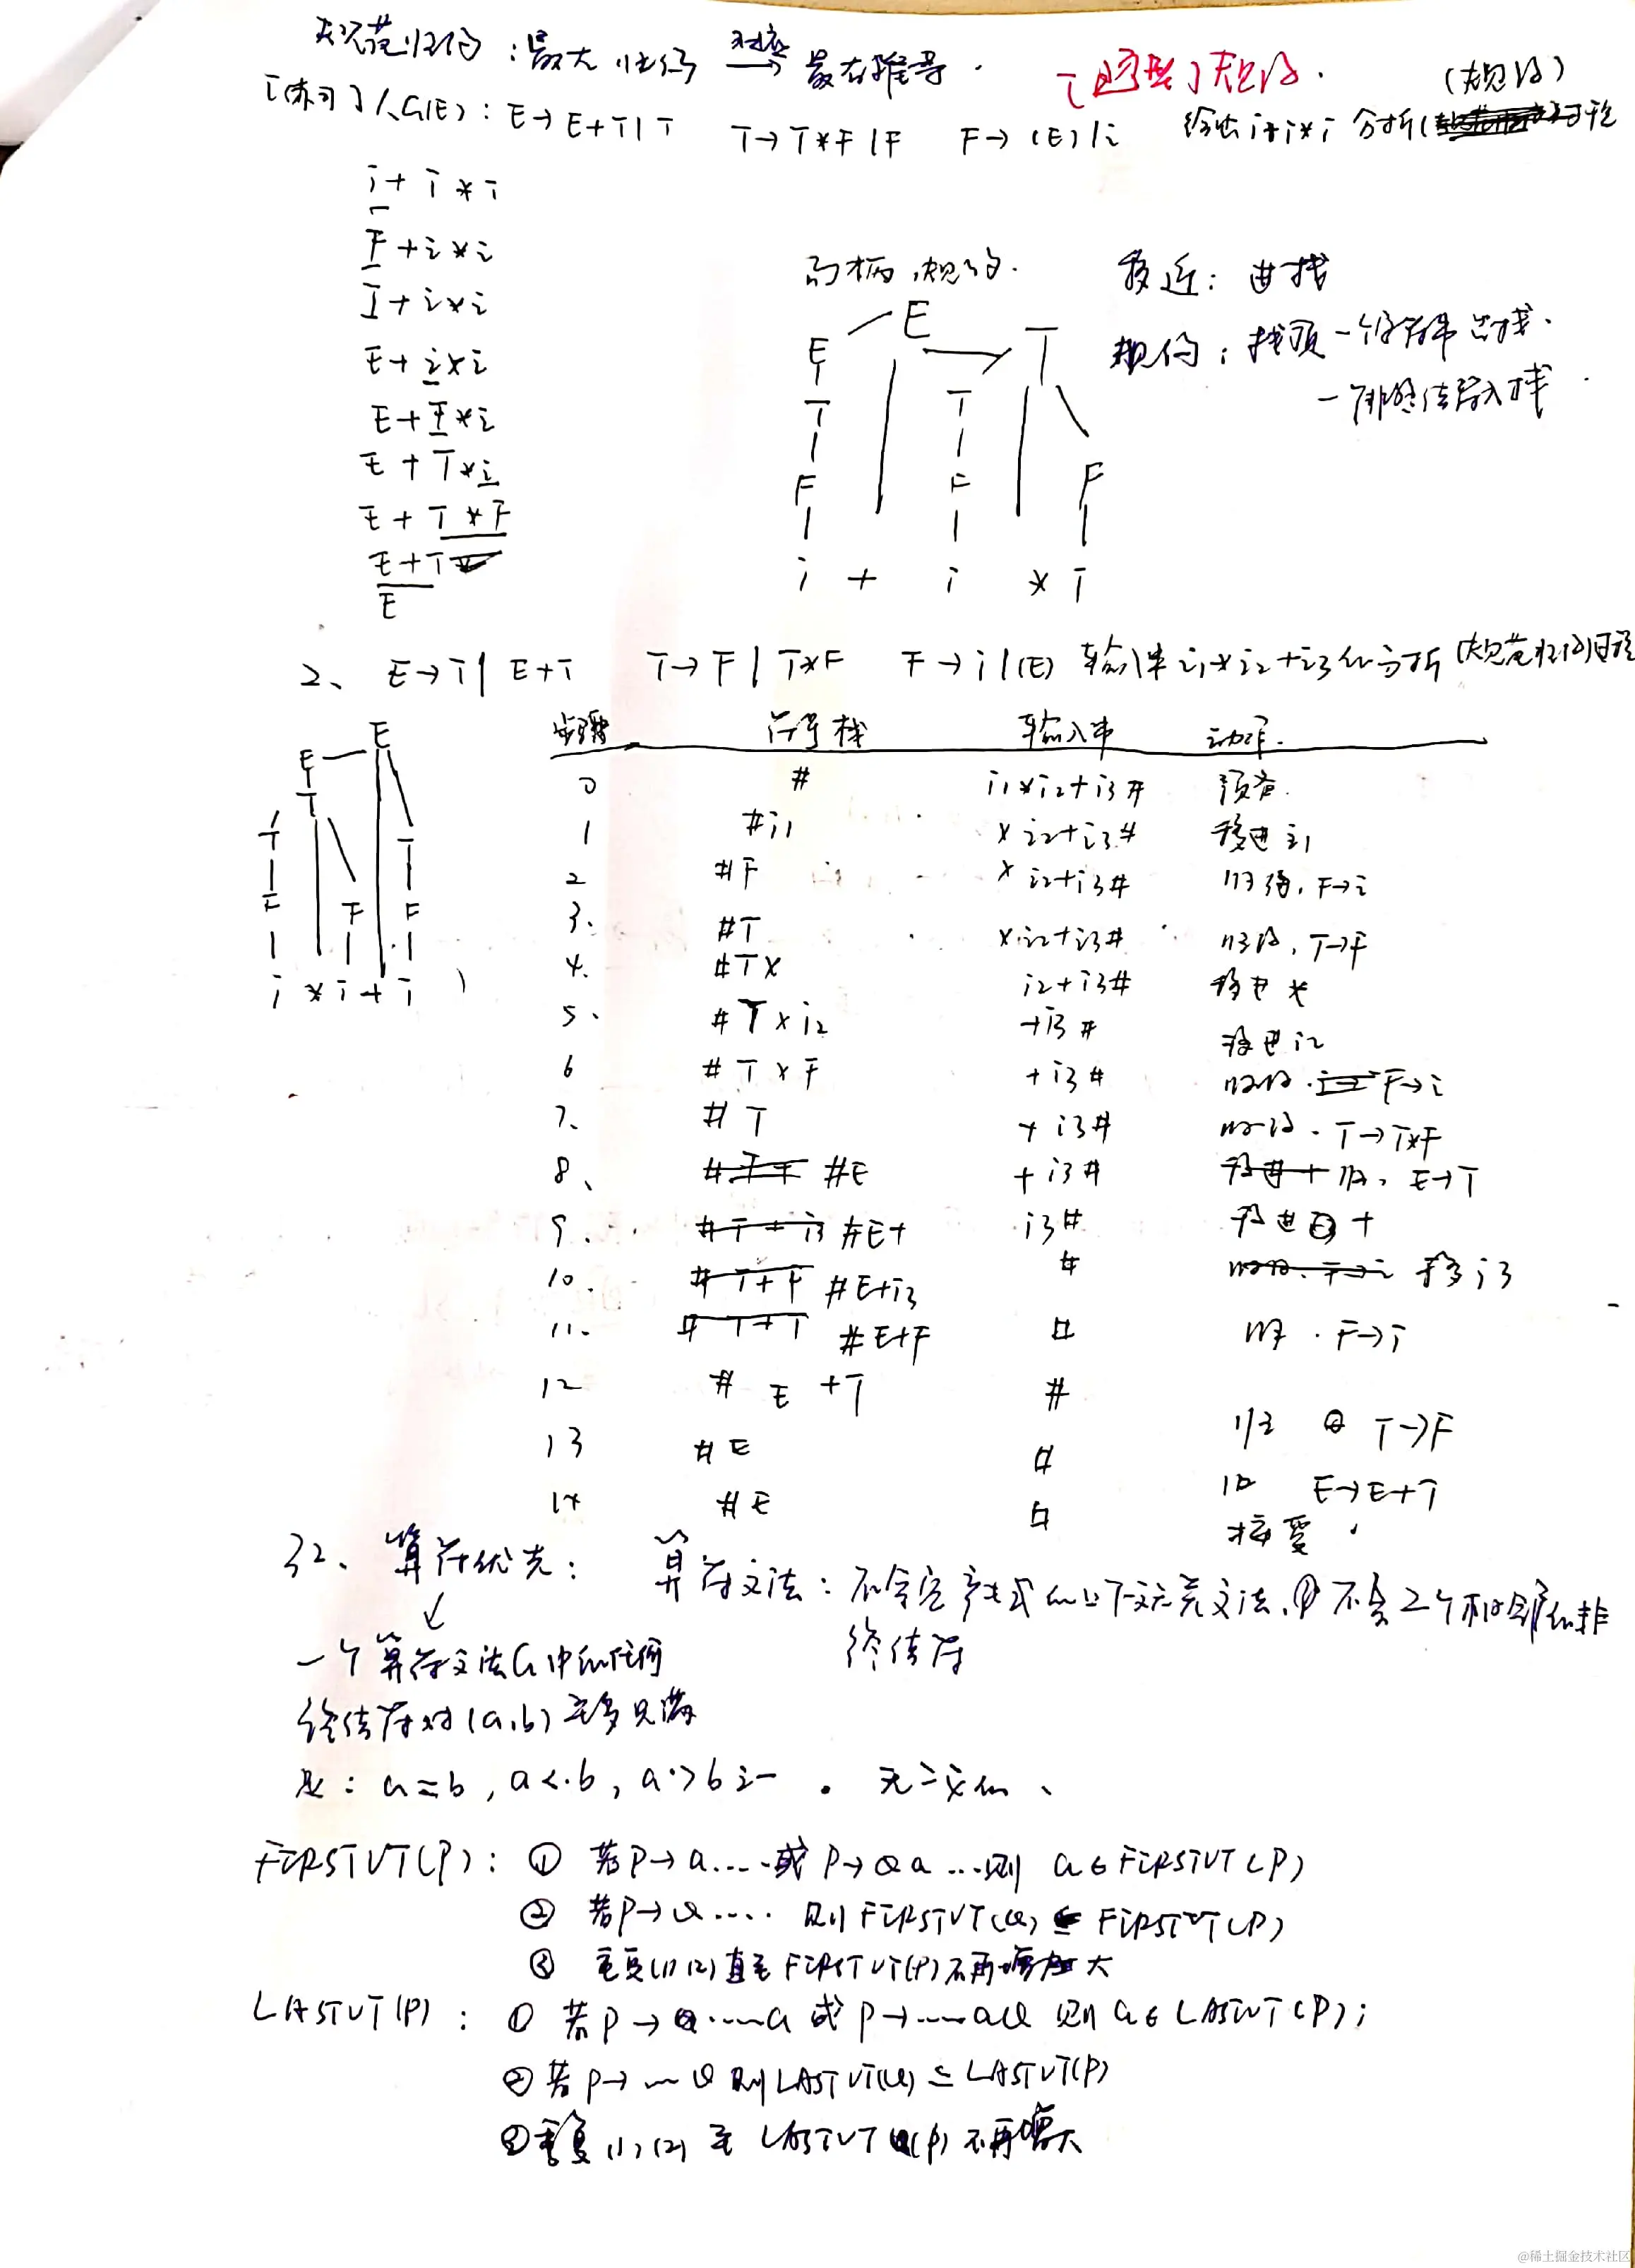 规范归约：最左归约 对应→ 最右推导．
[画型]规约．
（规约）
[练习]人G(E)：E→E+T|T　T→T*F|F　F→(E)|i　给出i+i*i 分析（过程
i+i*i
F+i*i
T+i*i
E+i*i
E+F*i
E+T*i
E+T*F
E+T
E
句柄，规约．
移近：进栈
规约：栈顶一个符号串出栈．
一个非终结符入栈．
E
E T
T T
F F F
i + i * i
2、E→T|E+T　T→F|T*F　F→i|(E) 输入串i1*i2+i3的分析（规范归约）过程
步骤 符号栈 输入串 动作．
0 # i1*i2+i3# 预备．
1 #i1 *i2+i3# 移进i1
2 #F *i2+i3# 归约，F→i
3. #T *i2+i3# 归约，T→F
4. #T* i2+i3# 移进*
5. #T*i2 +i3# 移进i2
6 #T*F +i3# 归约．F→i
7. #T +i3# 归约．T→T*F
8、 #E +i3# 归，E→T
9. #E+ i3# 移进+
10. #E+i3 # 移i3
11. #E+F # 归．F→i
12 #E+T # 归 T→F
13 #E # 归 E→E+T
14 #E # 接受．
E
E
T
T T
F F F
i * i + i
32、算符优先：　算符文法：不含空产生式的上下文无关文法，①不含2个相邻的非
终结符
一个算符文法G中的任何
终结符对(a,b)至多只满
足：a=b，a<·b，a·>b之一．无二义的、
FIRSTVT(P)：① 若P→a....或P→Qa...则 a∈FIRSTVT(P)
② 若P→Q.... 则FIRSTVT(Q)⊆FIRSTVT(P)
③ 重复(1)(2)直至FIRSTVT(P)不再增大
LASTVT(P)：① 若P→....a 或P→....aQ 则a∈LASTVT(P)；
② 若P→...Q 则LASTVT(Q)⊆LASTVT(P)
③ 重复(1)，(2) 至 LASTVT(P)不再增大
@稀土掘金技术社区